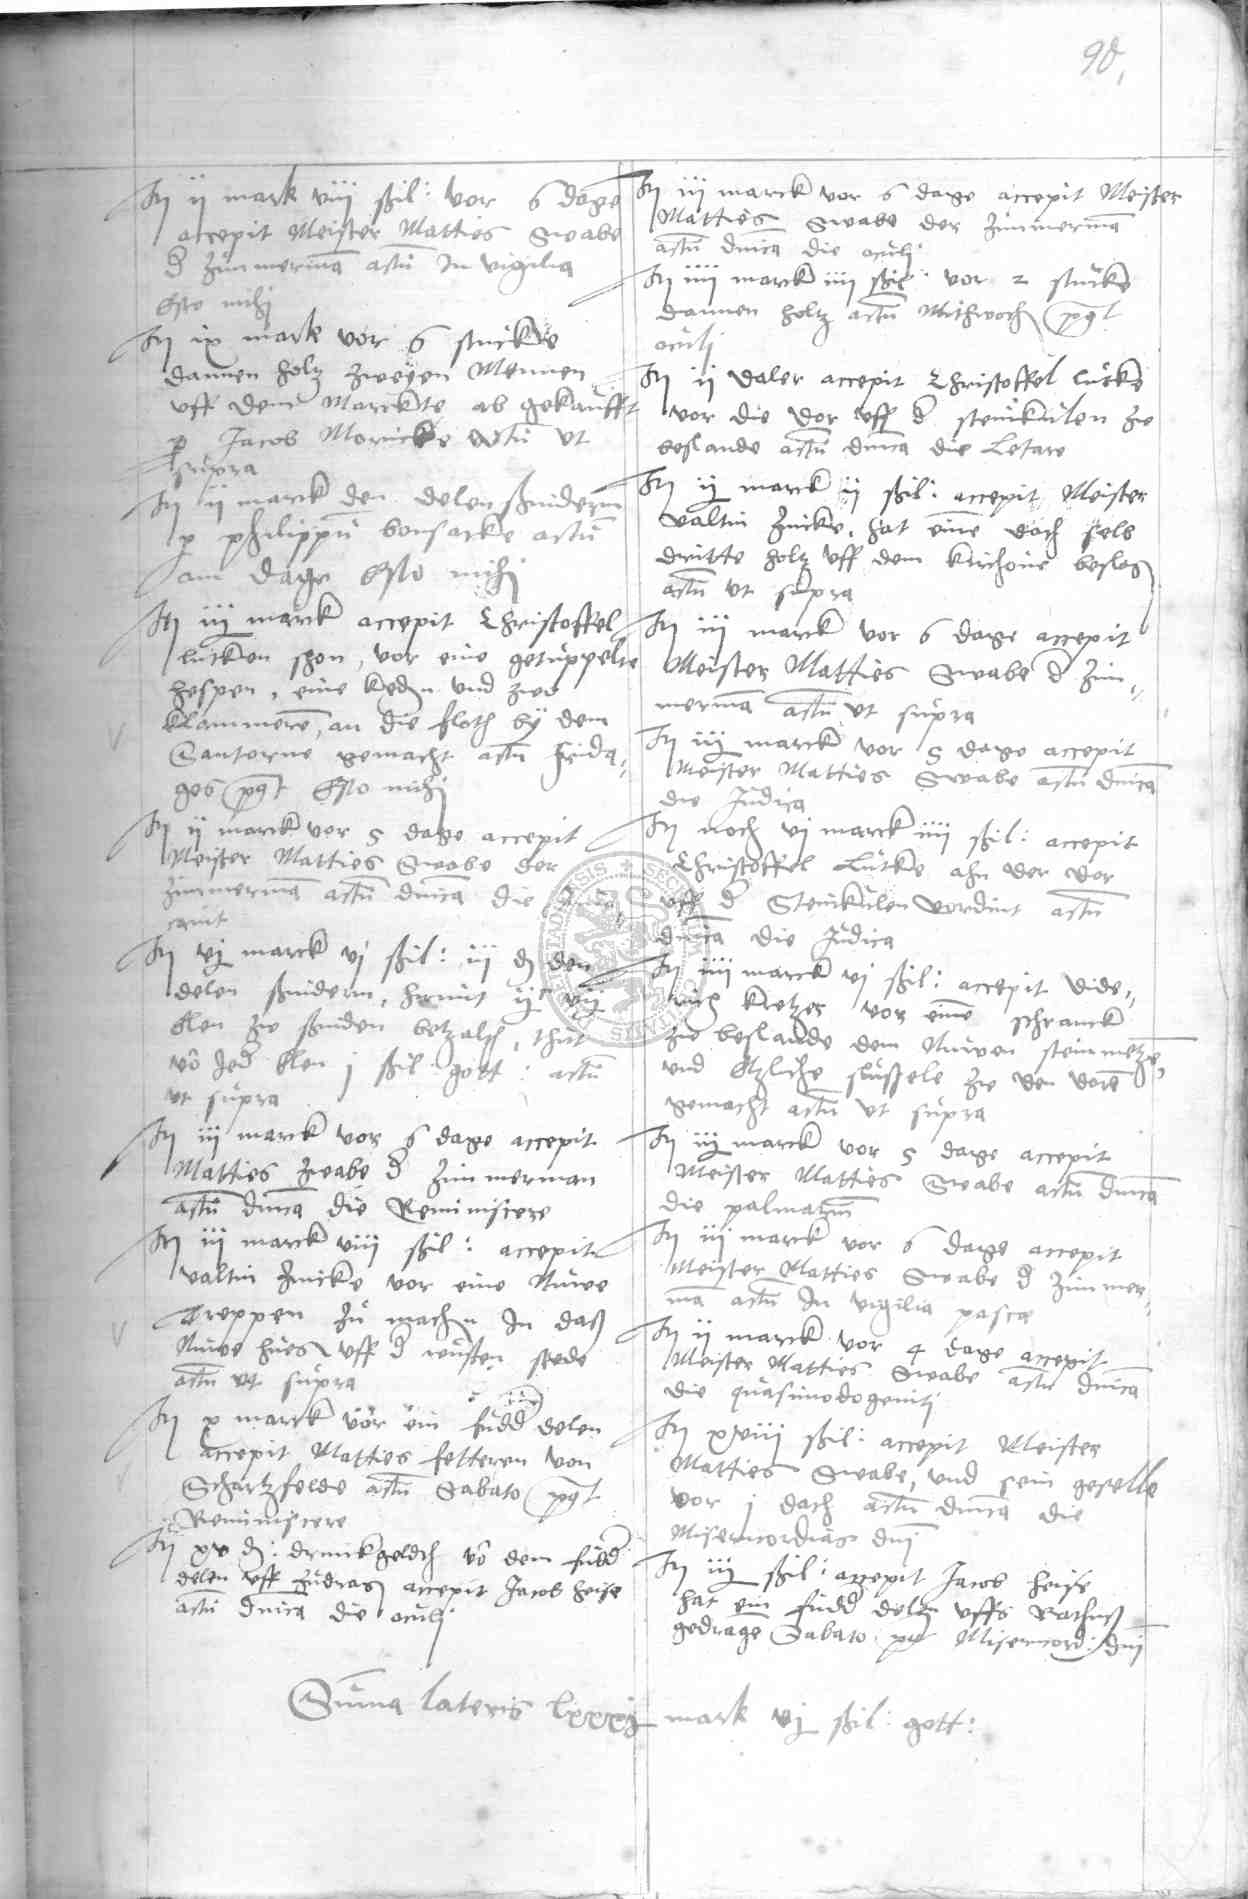 98
It ij mark viij ßil: vor 6 dage
accepit Meister Matties Swabe
d Zimmerma actu In vigilia
Esto mihi
It ix mark vor 6 stucke
dannen holtz zweyen Mennen
uff dem Marckte ab gekaufft
p Jacob Moricke actu ut
supra
It ij marck den delensnidern
p philippu bonsacke actu
am dage Esto mihi
It iij marck accepit Christoffel
lutken shon, vor eine getuppelte
hespen, eine keden und zwo
klammeren, an die floth by dem
Santorne gemacht actu frida,,
ges pqt Esto mihi
It ij marck vor 5 dage accepit
Meister Matties Swabe der
Zimmerma actu dnica die Invo,,
cavit
It vj marck vj ßil: iij d den
delen snidern, hernit
Elen zu sniden betzalt, thut
vo Jed Elen j ßil gott: actu
ut supra
It iij marck vor 6 dage accepit
Matties Zwabe d Zimmerman
actu dnica die Reminiscere
It iij marck viij ßil: accepit
valtin Zincke vor eine Nuwe
Treppen zu machen In daß
Nuwe hues uff d wusten stede
actu ut supra
It x marck vor ein fudd delen
accepit Matties felteren von
Schartzfelde actu Sabato pqt
Reminiscere
It xv d: drinckgeldth vo dem fudd
delen uff zudragen accepit Jacob heise
actu dnica die oculj
It iij marck vor 6 dage accepit Meister
Matties Swabe der Zimmerma
actu dnica die oculj
It iiij marck iiij ßil: vor 2 stucke
dannen holtz actu Mithwoch pqt
oculj
It ij daler accepit Christoffel lutke
vor die dor uff d steinkulen zu
beslande actu dnica die Letare
It ij marck ij ßil: accepit Meister
valtin Zincke, hat eine dach selb
dritte holtz uff dem kirchove beslagen
actu ut supra
It iij marck vor 6 dage accepit
Meister Matties Swabe d Zim,,
merma actu ut supra
It iij marck vor 5 dage accepit
Meister Matties Swabe actu dnica
die Judica
It noch vj marck iiij ßil: accepit
Christoffel Lutke ahn der dor
uff d Steinkulen vordint actu
dnica die Judica
It iiij marck vj ßil: accepit Dide,,
rich kretzer vor eine schranck
zu beslande dem Nuwen steinmetze,
und Etzliche slussele zu den doren
gemacht actu ut supra
It iij marck vor 5 dage accepit
Meister Matties Swabe actu dnica
die palmarum
It iij marck vor 6 dage accepit
Meister Matties Swabe d Zimmer,,
ma actu In vigilia pasce
It ij marck vor 4 dage accepit
Meister Matties Swabe actu dnica
die quasimodogeniti
It xviij ßil: accepit Meister
Matties Swabe, und sein geselle
vor j dach actu dnica die
Misericordias dni
It iij ßil: accepit Jacob heise
hat ein fudd delen uffs Rathuß
gedragen Sabato pt Misericord: dni
Suma lateris lxxxij mark vj ßil: gott: